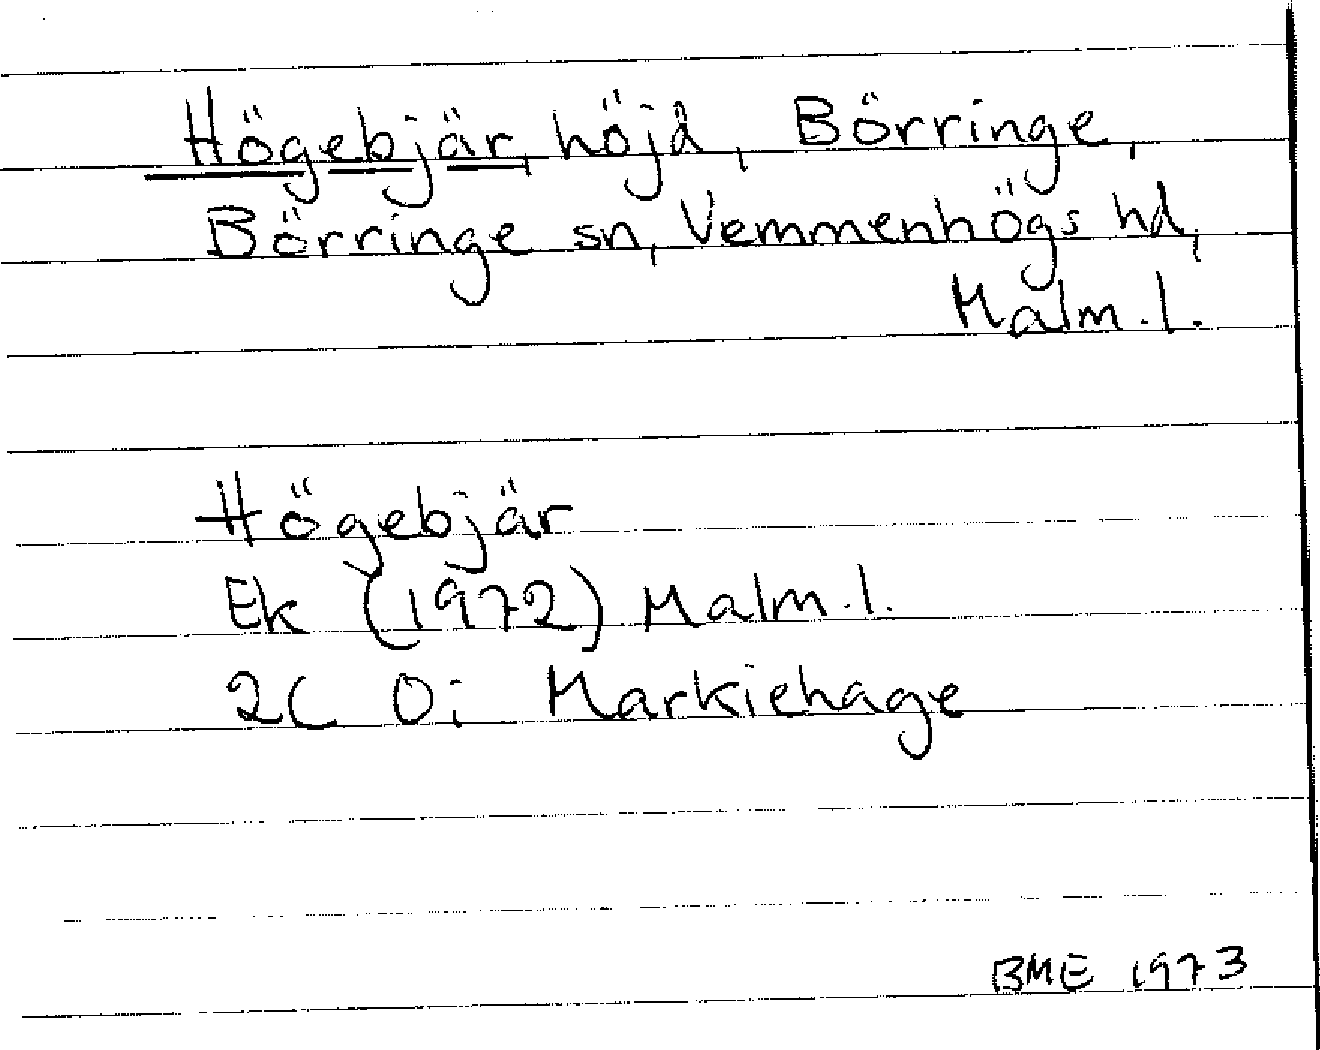 Högebjär, höjd, Börringe,
Börringe sn, Vemmenhögs hd,
Malm.l.
Högebjär
Ek (1972) Malm.l.
2C 0i Markiehage
BME 1973